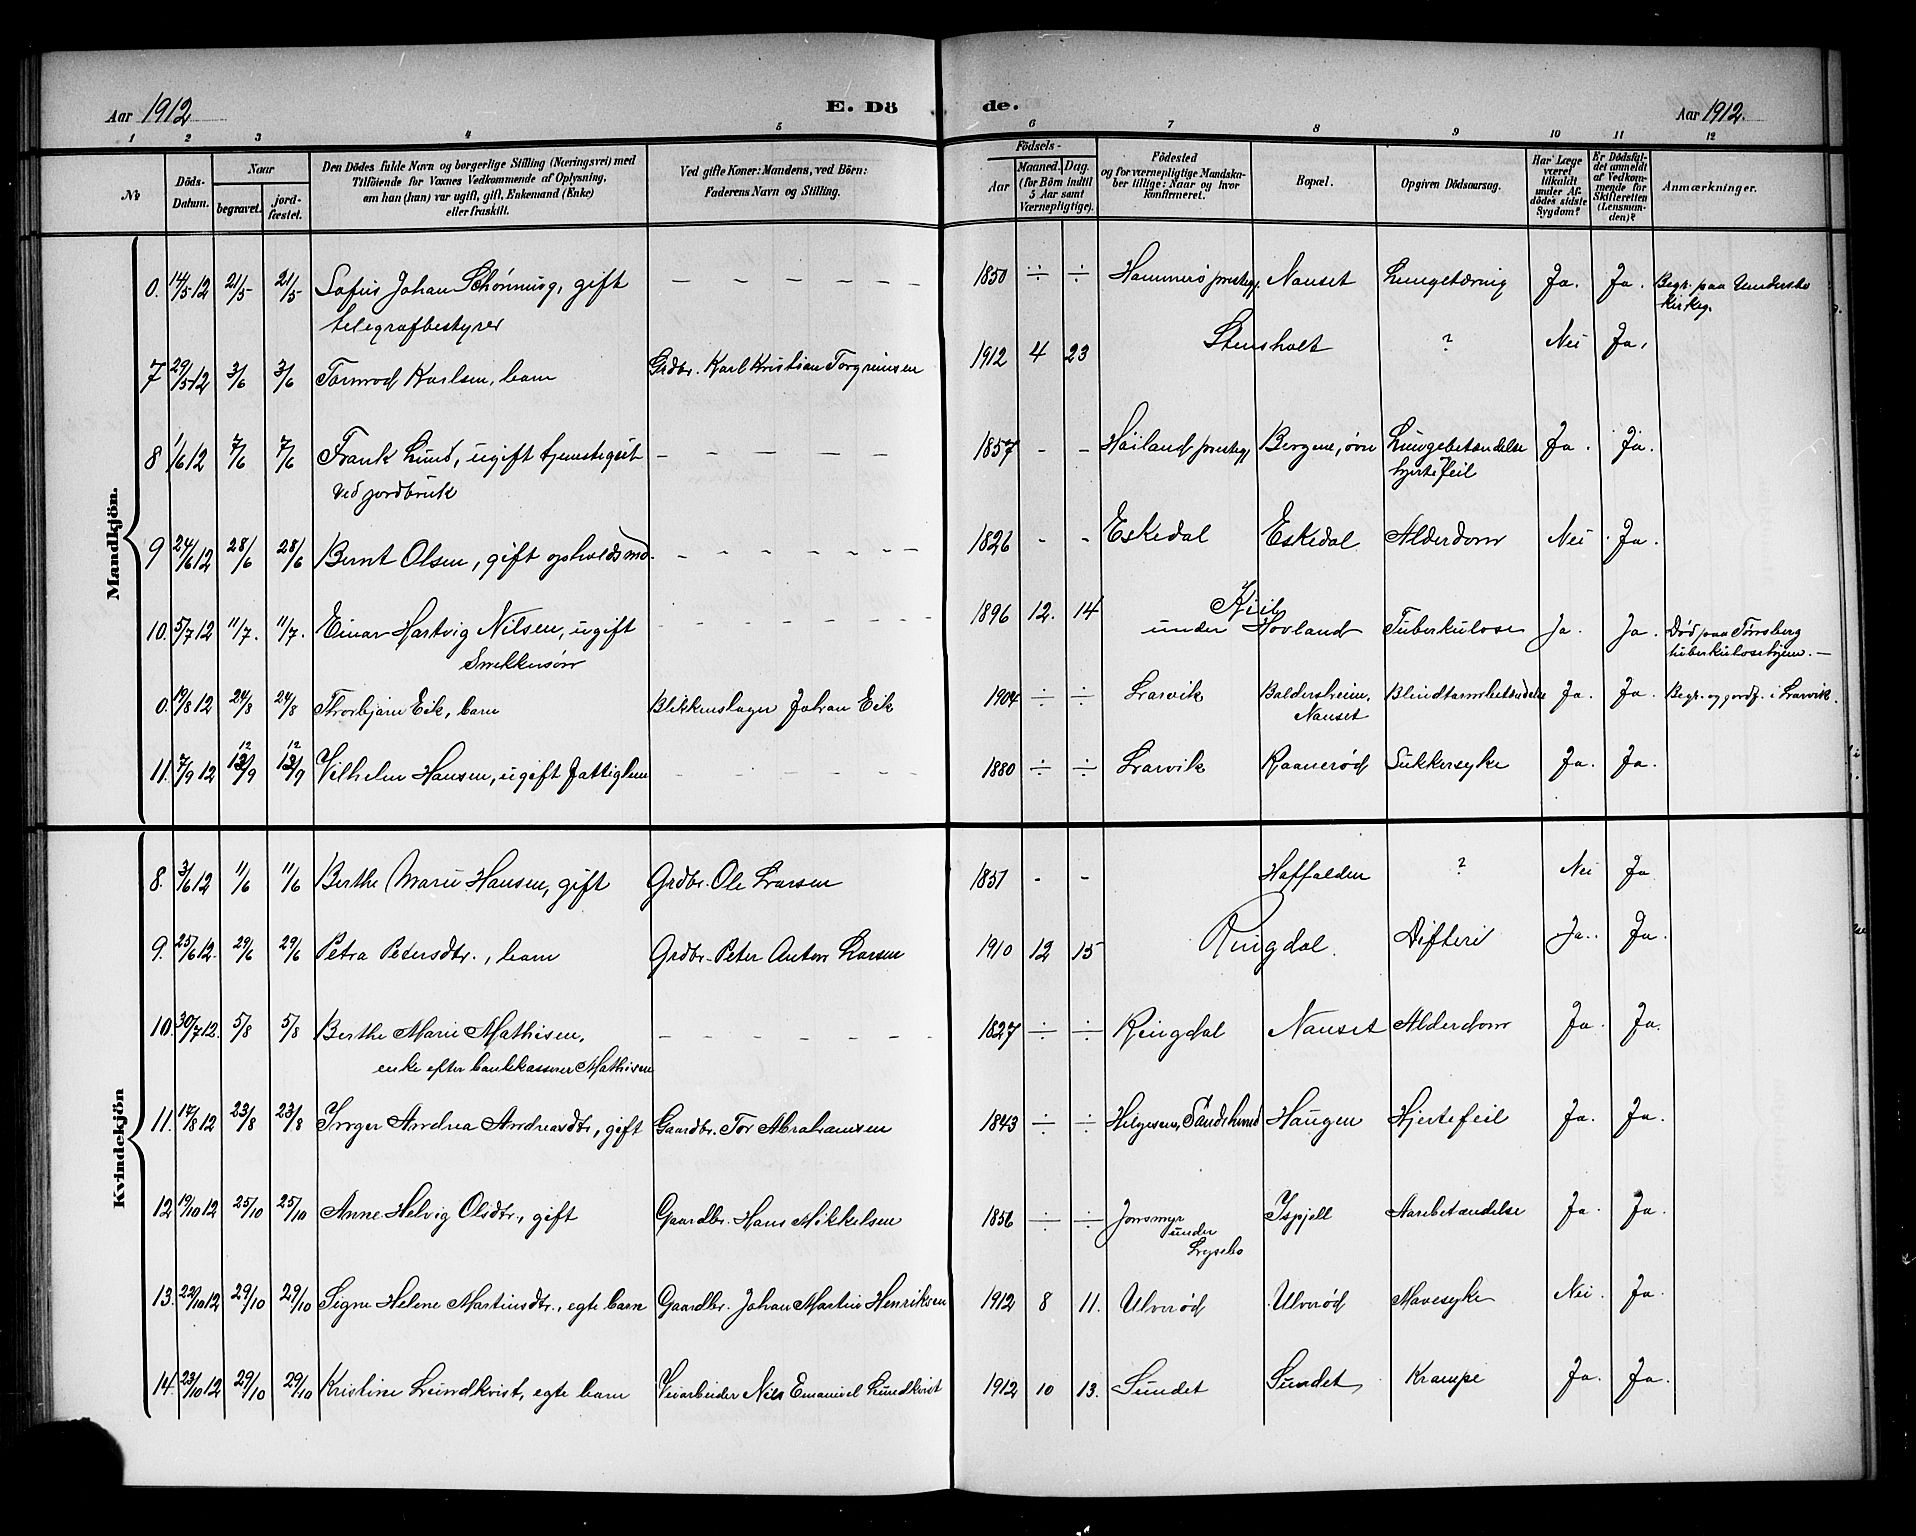 Aar 1912 E. Dö de. Aar 1912.
1 2 3 4 5 6 7 8 9 10 11 12
No
Döds-Datum.
Naar begravet. jordfæstet.
Den Dödes fulde Navn og borgerlige Stilling (Næringsvei) med
Tilföiende for Voxnes Vedkommende af Oplysning,
om han (hun) var ugift, gift, Enkemand (Enke)
eller fraskilt.
Ved gifte Koner: Mandens, ved Börn:
Faderens Navn og Stilling.
Födsels-
Aar Maaned. Dag.
(for Börn indtil 5 Aar samt Værnepligtige).
Födested
og for værnepligtige Mandskaber tillige: Naar og hvor konfirmeret.
Bopæl.
Opgiven Dödsaarsag.
Har Læge været tilkaldt under Afdödes sidste Sygdom?
Er Dödsfaldet anmeldt af Vedkommende for Skifteretten (Lensmanden)?
Anmærkninger.
Mandkjön.
0. 14/5 12 21/5 21/5 Sofus Johan Schønning, gift – – – – – – 1850 ÷ ÷ Hammers prestegj. Nanset Lungetæring Ja. Ja. Begr. paa Undersbo
telegrafbestyrer kirkeg.
7 29/5 12 3/6 3/6 Tormod Karlsen, barn Grdbr. Karl Kristian Torgrimsen 1912 4 23 Stensholt ? Nei Ja.
8 1/6 12 7/6 7/6 Frank Lund, ugift tjenstegut – – – – – – 1857 - - Høiland prestegj. Bergene, øvre Lungebetændelse Ja. Ja.
ved jordbruk hjertefeil
9 24/6 12 28/6 28/6 Bernt Olsen, gift opholdsmd. – – – – – – 1826 - - Eskedal Eskedal Alderdom Nei Ja.
10. 5/7 12 11/7. 11/7. Einar Hartvig Nilsen, ugift – – – – – – 1896 12. 14 Kiil
under Hovland Tuberkulose Ja. Ja. Død paa Tønsberg
Snekkersøn tuberkulosehjem. —
0. 19/8 12 24/8 24/8 Thorbjørn Eik, barn Blikkenslager Johan Eik 1904 ÷ ÷ Larvik Baldersheim, Blindtarmbetændelse Ja. Ja. Begr. og jordf. i Larvik.
Nanset
11. 7/9 12 12/9 12/9 Vilhelm Hansen, ugift fattiglem – – – – – – 1880 ÷ ÷ Larvik Raanerød Sukkersyke Ja. Ja.
Kvindekjön
8. 3/6 12 11/6 11/6 Berthe Marie Hansen, gift Grdbr. Ole Larsen 1851 - - Haffalden ? Nei Ja
9. 25/6 12. 29/6 29/6 Petra Petersdtr., barn Grdbr. Peter Anton Larsen 1910 12 15 Ringdal. Difteri Ja. Ja.
10. 30/7 12. 5/8 5/8 Berthe Marie Mathisen, – – – – – – 1827 ÷ ÷ Ringdal Nanset Alderdom Ja. Ja.
enke efter bankekasserer Mathisen
11. 17/8 12 23/8 23/8 Inger Andrea Andreasdtr, gift Gaardbr. Tor Abrahamsen 1843 ÷ ÷ Sandshund Haugen Hjertefeil Ja. Ja.
12 19/10 12 25/10 25/10 Anne Helvig Olsdtr., gift Gaardbr. Hans Mikkelsen 1856 ÷ ÷ Jonsmyr Ispjell Aarebetændelse Ja. Ja.
under
Lysebo
13. 22/10 12 29/10 29/10 Signe Helene Martinsdtr., egte barn Gaardbr. Johan Martin Henriksen 1912 8 11. Ulverød Ulverød Mavesyke Nei. Ja.
14. 23/10 12 29/10 29/10 Kristine Lundkvist, egte barn Veiarbeider Nils Emanuel Lundkvist 1912 10 13. Sundet Sundet Krampe Ja. Ja.